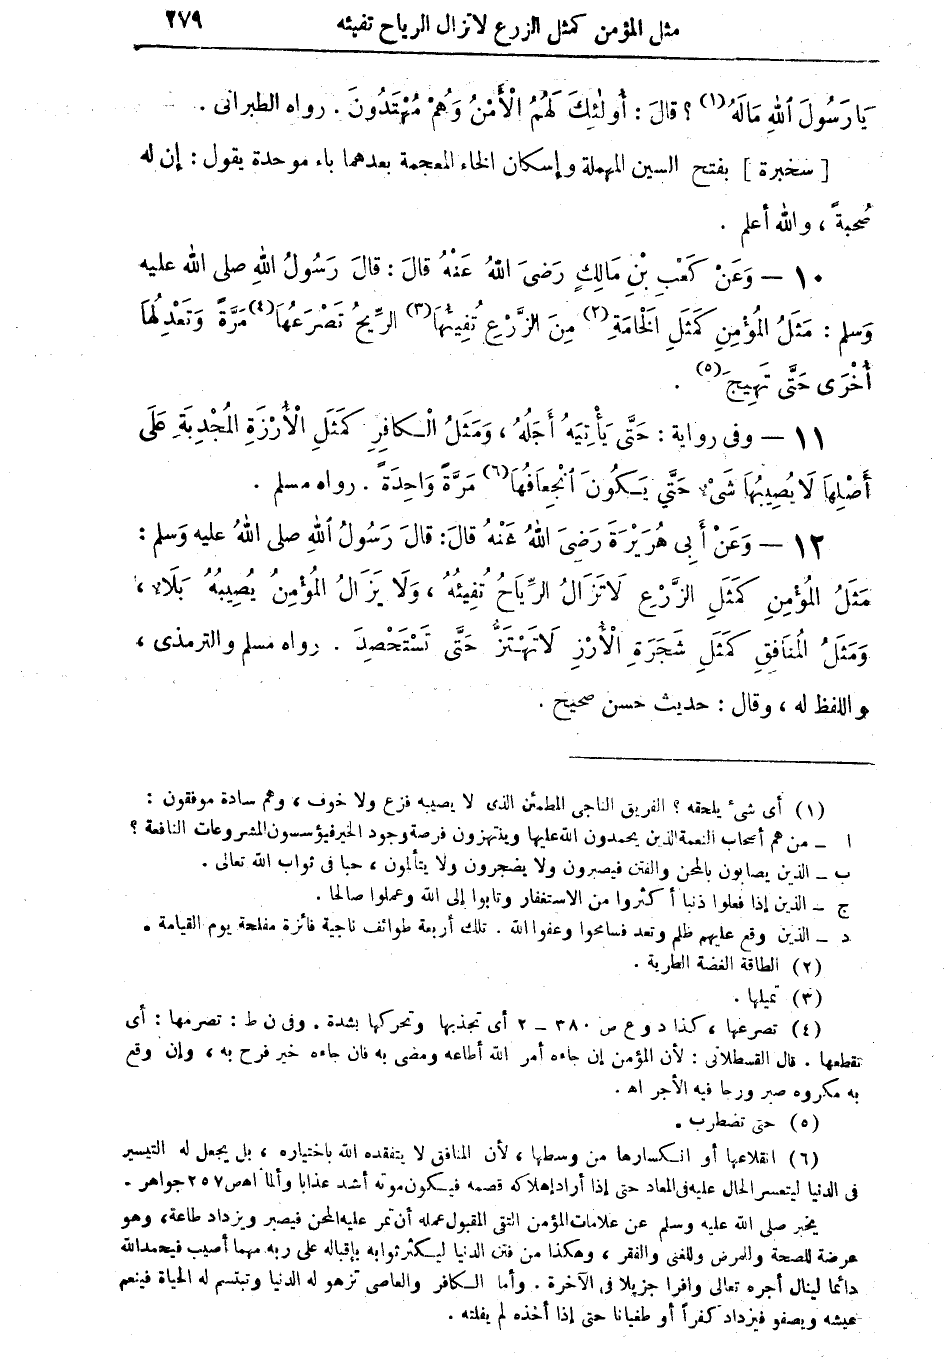 مثل المؤمن كمثل الزرع لا تزال الرياح تفيئه ٢٧٩
يَا رَسُولَ ٱللهِ مَالَهُ (١) ؟ قالَ : أُولٰئِكَ لَهُمُ الْأَمْنُ وَهُمْ مُهْتَدُونَ . رواه الطبرانى .
[ سخبرة ] بفتح السين المهملة وإسكان الخاء المعجمة بعدهما باء موحدة يقول : إن له
صُحبةً ، والله أعلم .
١٠ – وَعَنْ كَعْبِ بْنِ مَالِكٍ رَضِىَ اللهُ عَنْهُ قالَ : قالَ رَسُولُ اللهِ صلى الله عليه
وَسلم : مَثَلُ المُؤْمِنِ كَمَثَلِ الْخَامَةِ (٢) مِنَ الزَّرْعِ تُفِيئُهَا (٣) الرِّيحُ تَصْرَعُهَا (٤) مَرَّةً وَتَعْدِلُهَا
أُخْرَى حَتَّى تَهِيجَ (٥) .
١١ – وفى رواية : حَتَّى يَأْتِيَهُ أَجَلُهُ ، وَمَثَلُ الْكافِرِ كَمَثَلِ الْأَرْزَةِ المُجْدِبَةِ عَلَى
أَصْلِهَا لَا يُصِيبُهَا شَىْءٌ حَتَّي يَكُونَ ٱنْجِعَافُهَا (٦) مَرَّةً وَاحِدَةً . رواه مسلم .
١٢ – وَعَنْ أَبِى هُرَيْرَةَ رَضِىَ اللهُ عَنْهُ قالَ: قالَ رَسُولُ اللهِ صلى اللهُ عليه وَسلم :
مَثَلُ المُؤْمِنِ كَمَثَلِ الزَّرْعِ لَا تَزَالُ الرِّيَاحُ تُفِيئُهُ ، وَلَا يَزَالُ المُؤْمِنُ يُصِيبُهُ بَلَاءٌ ،
وَمَثَلُ المُنَافِقِ كَمَثَلِ شَجَرَةِ الْأَرْزِ لَا تَهْتَزُّ حَتَّى تَسْتَحْصِدَ . رواه مسلم والترمذى ،
واللفظ له ، وقال : حديث حسن صحيح .
(١) أى شىء يلحقه ؟ الفريق الناجى المطمئن الذى لا يصيبه فزع ولا خوف ، وهم سادة موفقون :
ا – من هم أصحاب النعمة الذين يحمدون الله عليها وينتهزون فرصة وجود الخير فيؤسسون المشروعات النافعة ؟
ب – الذين يصابون بالمحن والفتن فيصبرون ولا يضجرون ولا يتألمون ، حبا فى ثواب الله تعالى .
ج – الذين إذا فعلوا ذنبا أكثروا من الاستغفار وتابوا إلى الله وعملوا صالحا .
د – الذين وقع عليهم ظلم وتعد فسامحوا وعفوا الله . تلك أربعة طوائف ناجية فائزة مفلحة يوم القيامة .
(٢) الطاقة الغضة الطرية .
(٣) تميلها .
(٤) تصرعها ، كذا د و ع ص ٣٨٠ – ٢ أى تجذبها وتحركها بشدة . وفى ن ط : تصرمها : أى
تقطعها . قال القسطلانى : لأن المؤمن إن جاءه أمر الله أطاعه ومضى به فان جاءه خير فرح به ، وإن وقع
به مكروه صبر ورجا فيه الأجر اهـ .
(٥) حتى تضطرب .
(٦) انقلاعها أو انكسارها من وسطها ، لأن المنافق لا يتفقده الله باختياره ، بل يجعل له التيسير
فى الدنيا ليتعسر الحال عليه فى المعاد حتى إذا أراد إهلاكه قصمه فيكون موته أشد عذابا وألما اهـ ص ٢٥٧ جواهر .
يخبر صلى الله عليه وسلم عن علامات المؤمن التقى المقبول عمله أن تمر عليه المحن فيصبر ويزداد طاعة، وهو
عرضة للصحة والمرض وللغنى والفقر ، وهكذا من فتن الدنيا ليكثر ثوابه بإقباله على ربه مهما أصيب فيحمد الله
دائما لينال أجره تعالى وافرا جزيلا فى الآخرة . وأما الكافر والعاصى تزهو له الدنيا وتبتسم له الحياة فينعم
عيشه ويصفو فيزداد كفراً أو طغيانا حتى إذا أخذه لم يفلته .